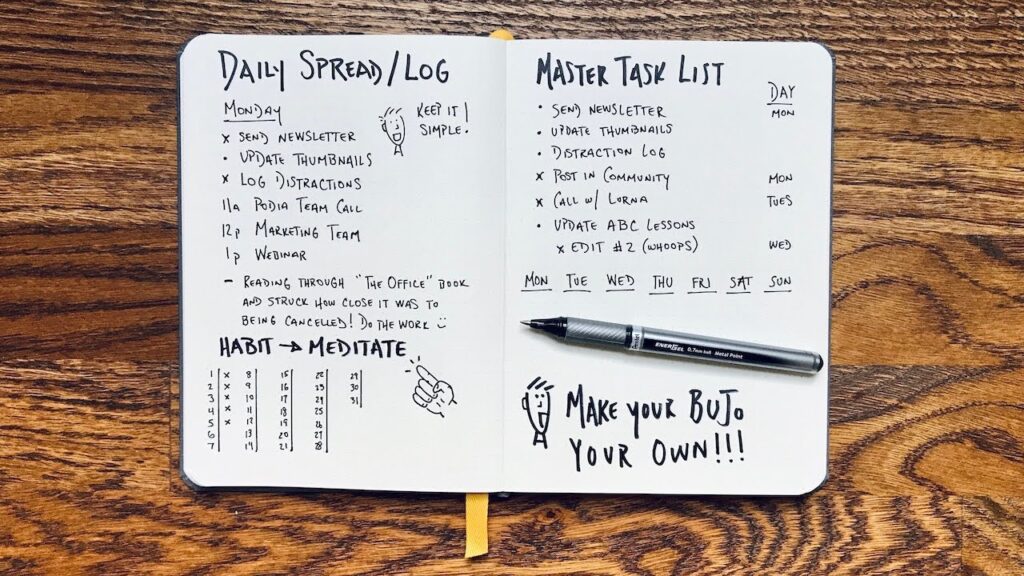 DAILY SPREAD/LOG
MONDAY
KEEP IT
SIMPLE.
x SEND NEWSLETTER
• UPDATE THUMBNAILS
x LOG DISTRACTIONS
11a PODIA TEAM CALL
12p MARKETING TEAM
1p WEBINAR
– READING THROUGH "THE OFFICE" BOOK
AND STRUCK HOW CLOSE IT WAS TO
BEING CANCELLED! DO THE WORK
HABIT → MEDITATE
1 x 8 15 22 29
2 x 9 16 23 30
3 x 10 17 24 31
4 x 11 18 25
5 x 12 19 26
6 13 20 27
7 14 21 28
MASTER TASK LIST
DAY
• SEND NEWSLETTER MON
• UPDATE THUMBNAILS
• DISTRACTION LOG
x POST IN COMMUNITY MON
x CALL W/ LORNA TUES
• UPDATE ABC LESSONS
x EDIT #2 (WHOOPS) WED
MON TUE WED THU FRI SAT SUN
Pentel ENERGEL 0.7mm ball Metal Point
MAKE YOUR BUJO
YOUR OWN!!!